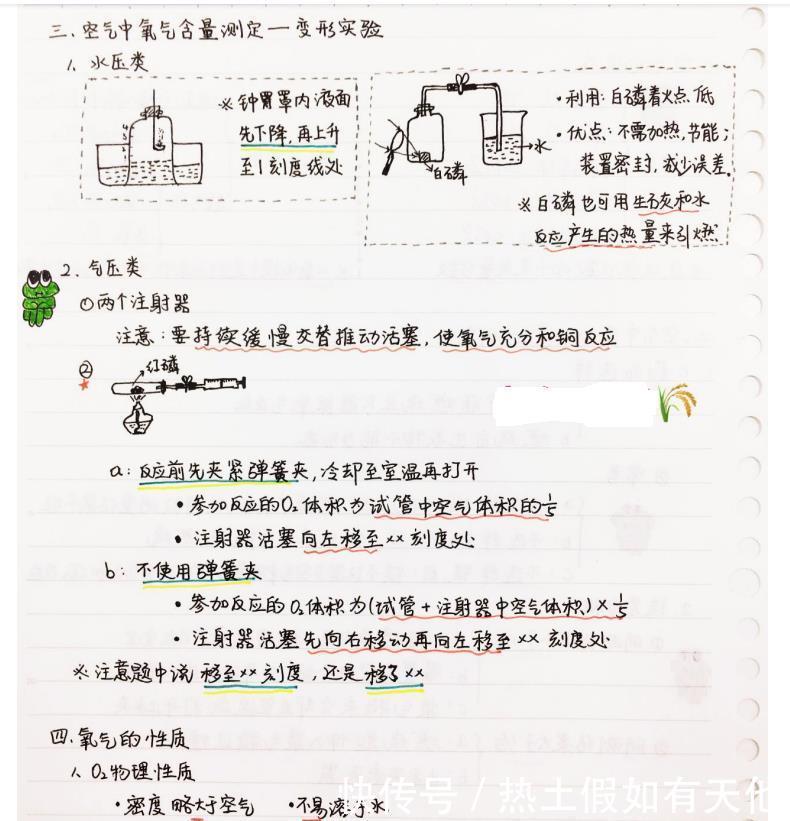 三、空气中氧气含量测定—变形实验
1、水压类
※钟罩内液面
先下降,再上升
至1刻度线处
·利用:白磷着火点低
·优点:不需加热,节能;
装置密封,减少误差。
水
白磷
※白磷也可用生石灰和水
反应产生的热量来引燃
2、气压类
①两个注射器
注意:要持续缓慢交替推动活塞,使氧气充分和铜反应
②
红磷
a:反应前先夹紧弹簧夹,冷却至室温再打开
·参加反应的O₂体积为试管中空气体积的1/5
·注射器活塞向左移至××刻度处
b:不使用弹簧夹
·参加反应的O₂体积为(试管+注射器中空气体积)×1/5
·注射器活塞先向右移动再向左移至××刻度处
※注意题中说移至××刻度,还是移了××
四、氧气的性质
1、O₂物理性质
·密度略大于空气 ·不易溶于水
快传号/热土假如有天他